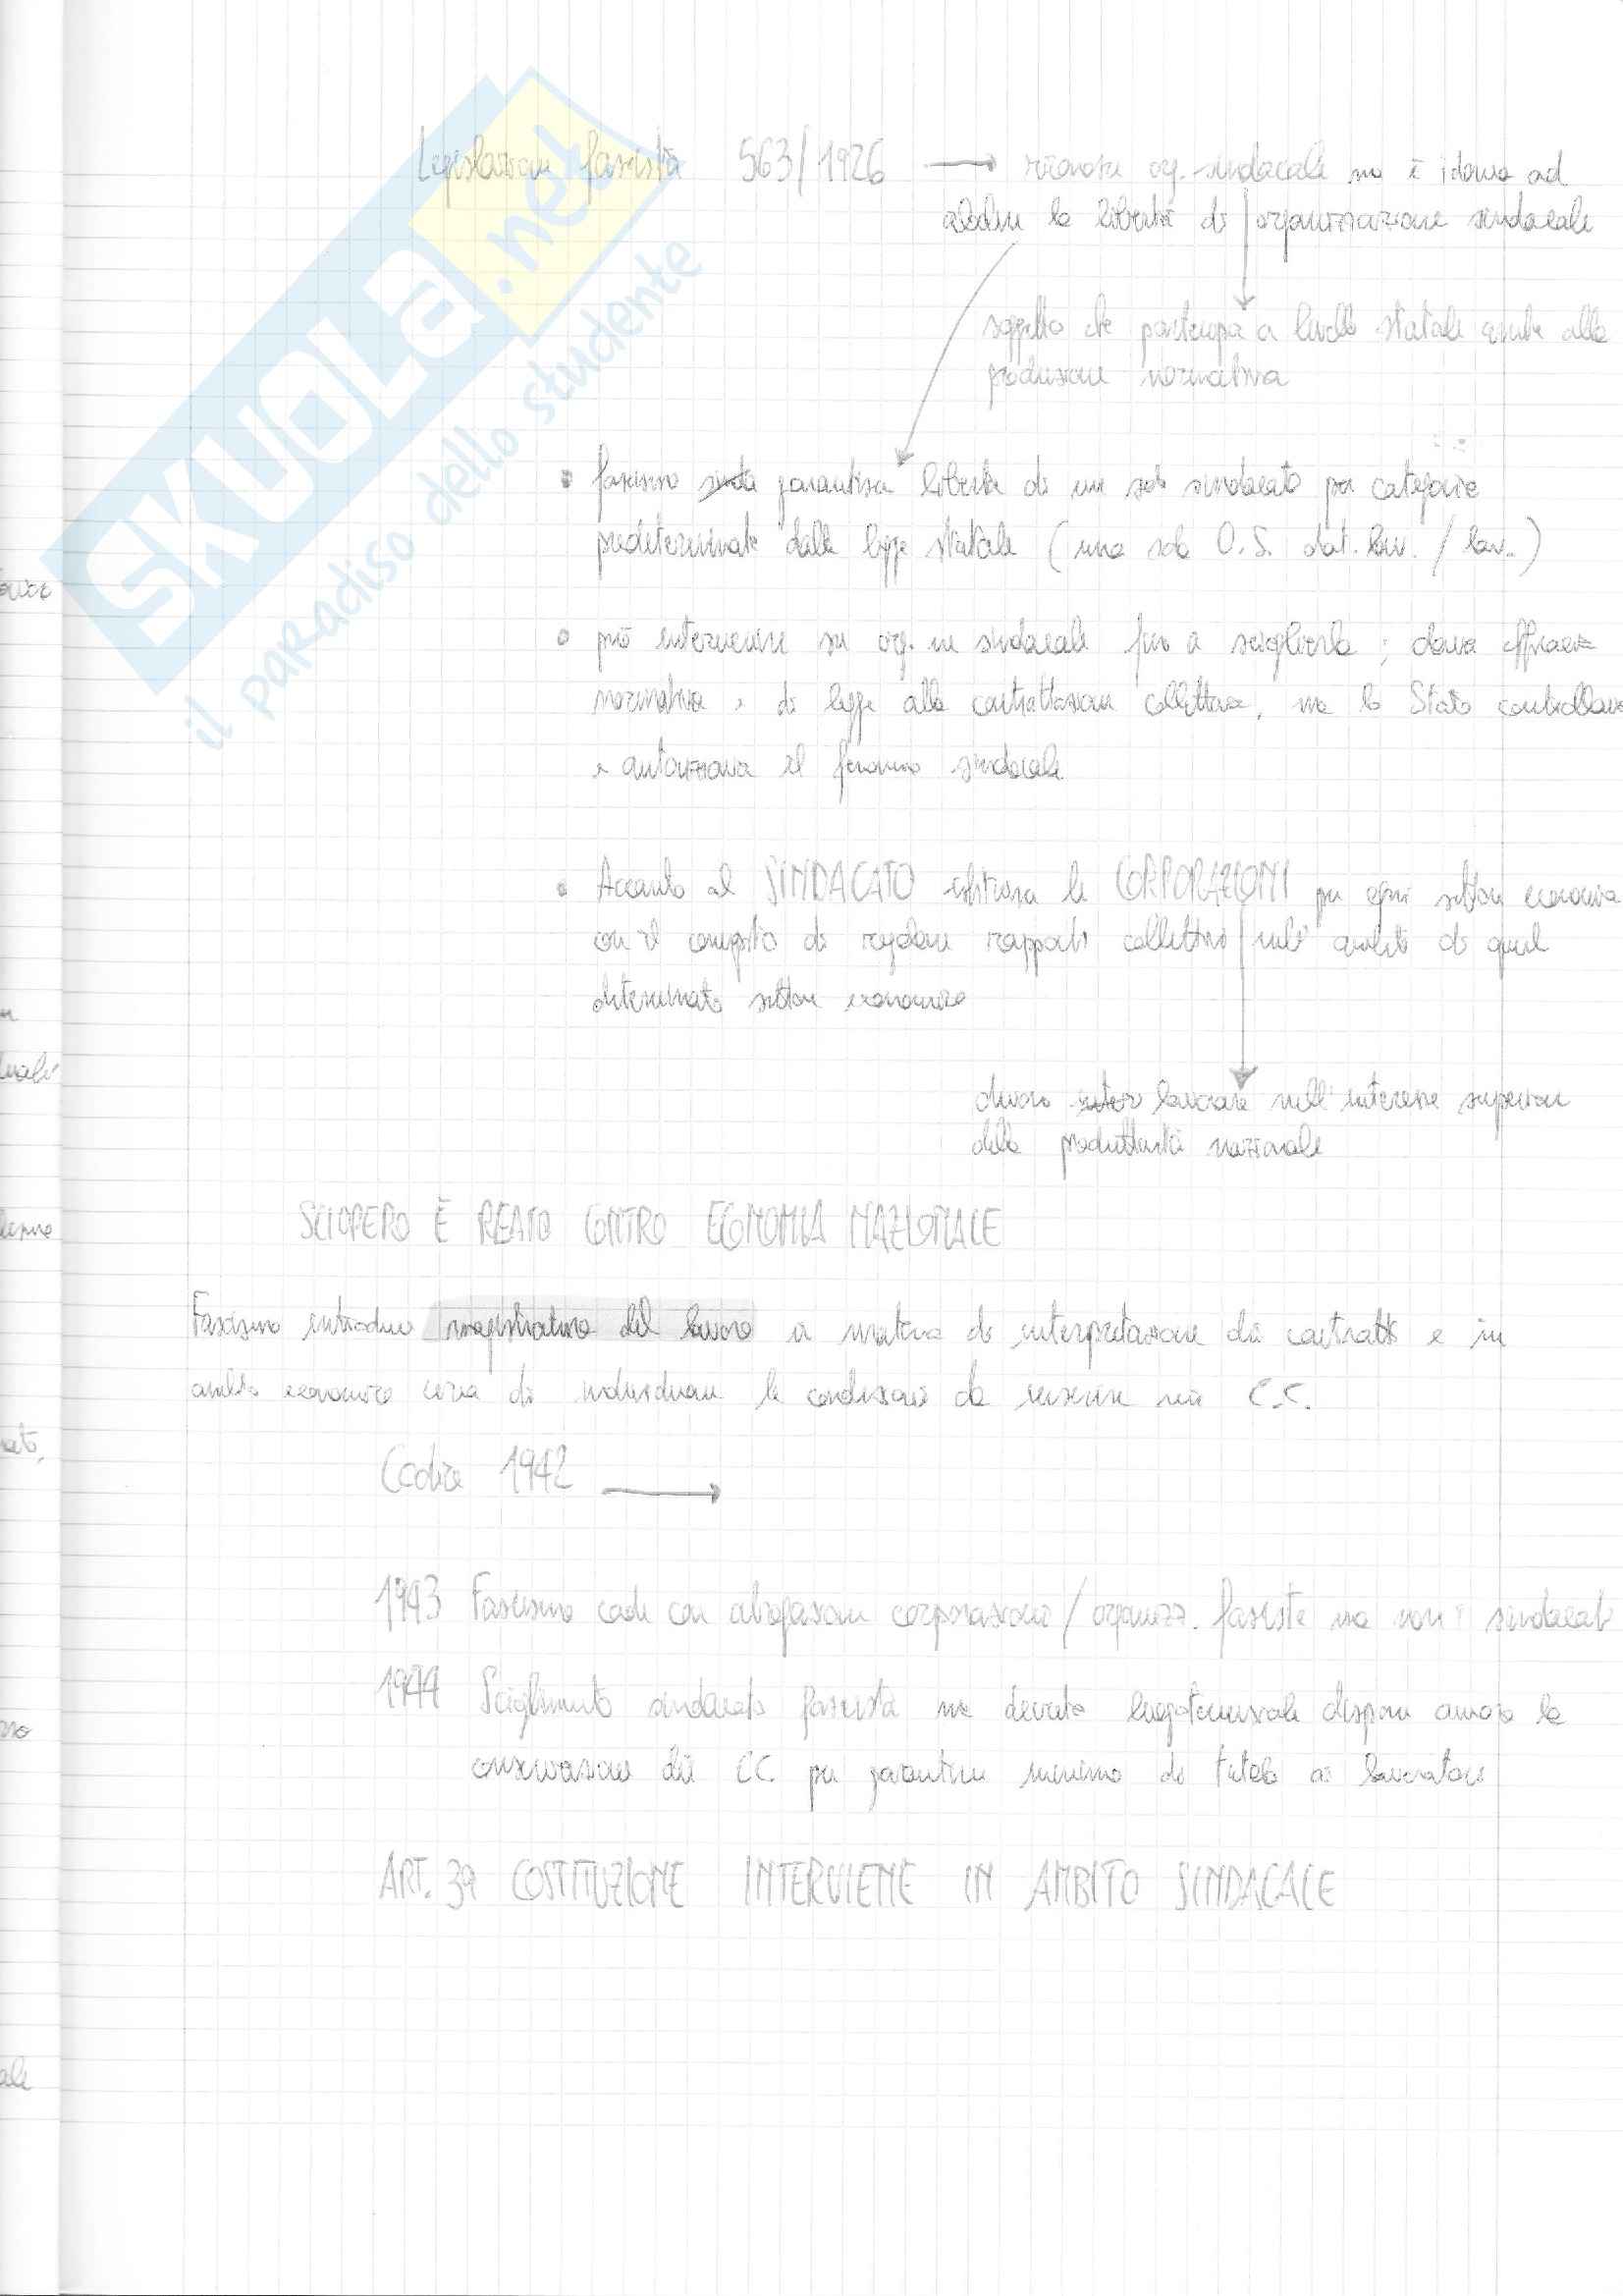 Legislazione fascista 563/1926 → riconosce org. sindacale ma è idonea ad
abolire la libertà di organizzazione sindacale
soggetto che partecipa a livello statale anche alla
produzione normativa
• fascismo garantisca libertà di un solo sindacato per categorie
predeterminate dalla legge statale (una sola O.S. dat. lav. / lav.)
• può intervenire su org.ne sindacale fino a scioglierla; dava efficacia
normativa e di legge alla contrattazione collettiva, ma lo Stato controllava
e autorizzava il fenomeno sindacale
• Accanto al SINDACATO esistevano le CORPORAZIONI per ogni settore economico
con il compito di regolare rapporti collettivi nell'ambito di quel
determinato settore economico
devono lavorare nell'interesse superiore
della produttività nazionale
SCIOPERO È REATO CONTRO ECONOMIA NAZIONALE
Fascismo introduce magistratura del lavoro in materia di interpretazione dei contratti e in
ambito economico cerca di individuare le condizioni da inserire nei C.C.
Codice 1942 →
1943 Fascismo cade con abrogazione corporazioni / organizz. fasciste ma non i sindacati
1944 Scioglimento sindacato fascista ma decreto luogotenenziale dispone ancora la
conservazione dei CC. per garantire minimo di tutela ai lavoratori
ART. 39 COSTITUZIONE INTERVIENE IN AMBITO SINDACALE
SKUOLA.net
il paradiso dello studente